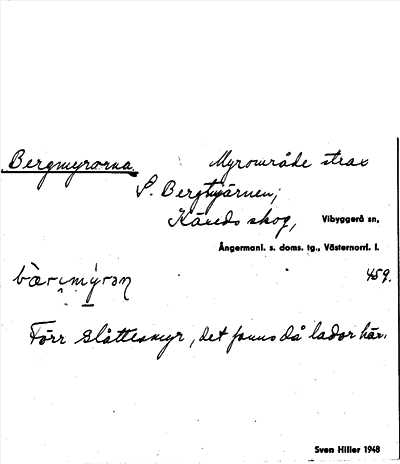 Bergmyrorna. Myrområde strax
S. Bergtjärnen;
Käreds skog, Vibyggerå sn,
Ångermanl. s. doms. tg., Västernorrl. l.
459.
Förr slåttesmyr, det fanns då lador här.
Sven Hiller 1948